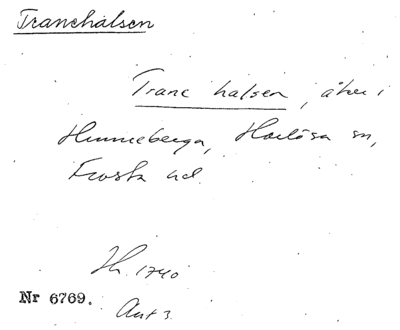 Tranehalsen
Trane halsen, åker i
Hunneberga, Harlösa sn,
Frosta hd.
Lh. 1740
Nr 6769.
Akt 3.